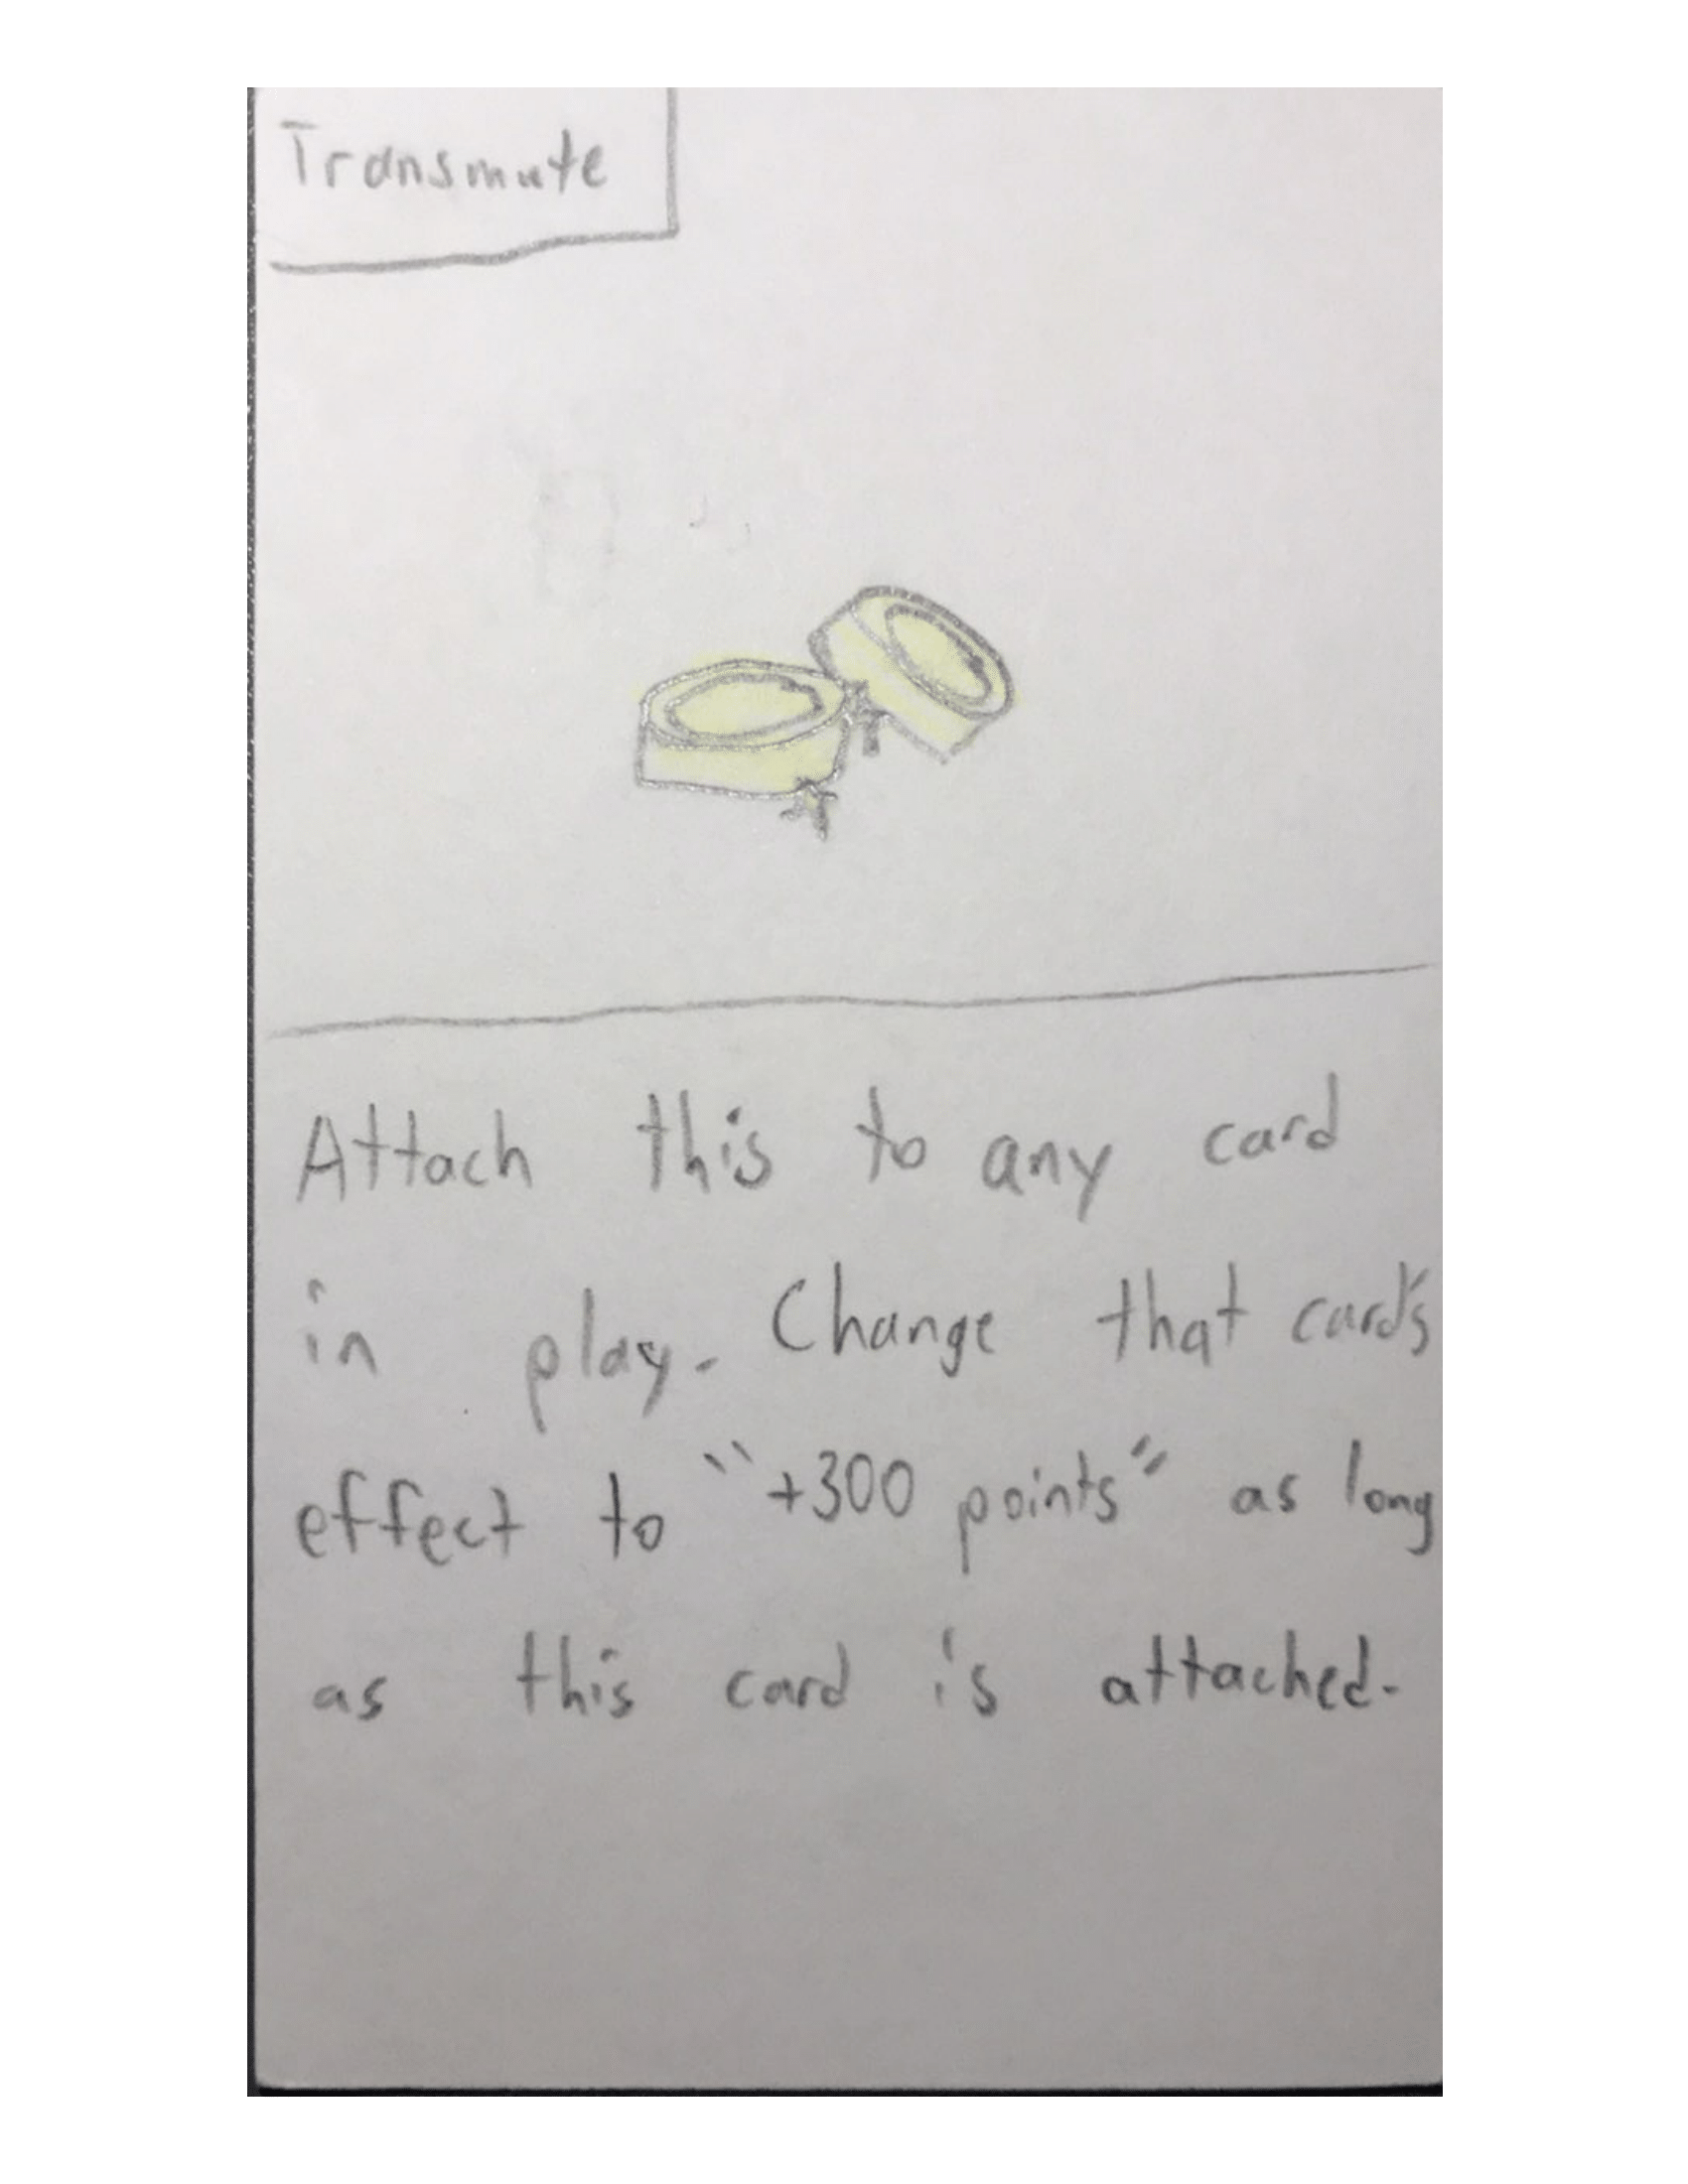 Transmute
Attach this to any card
in play. Change that card's
effect to "+300 points" as long
as this card is attached.